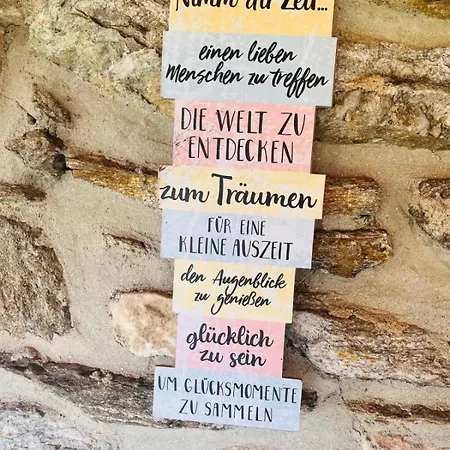 Nimm dir Zeit...
einen lieben
Menschen zu treffen
DIE WELT ZU
ENTDECKEN
zum Träumen
FÜR EINE
KLEINE AUSZEIT
den Augenblick
zu genießen
glücklich
zu sein
UM GLÜCKSMOMENTE
ZU SAMMELN